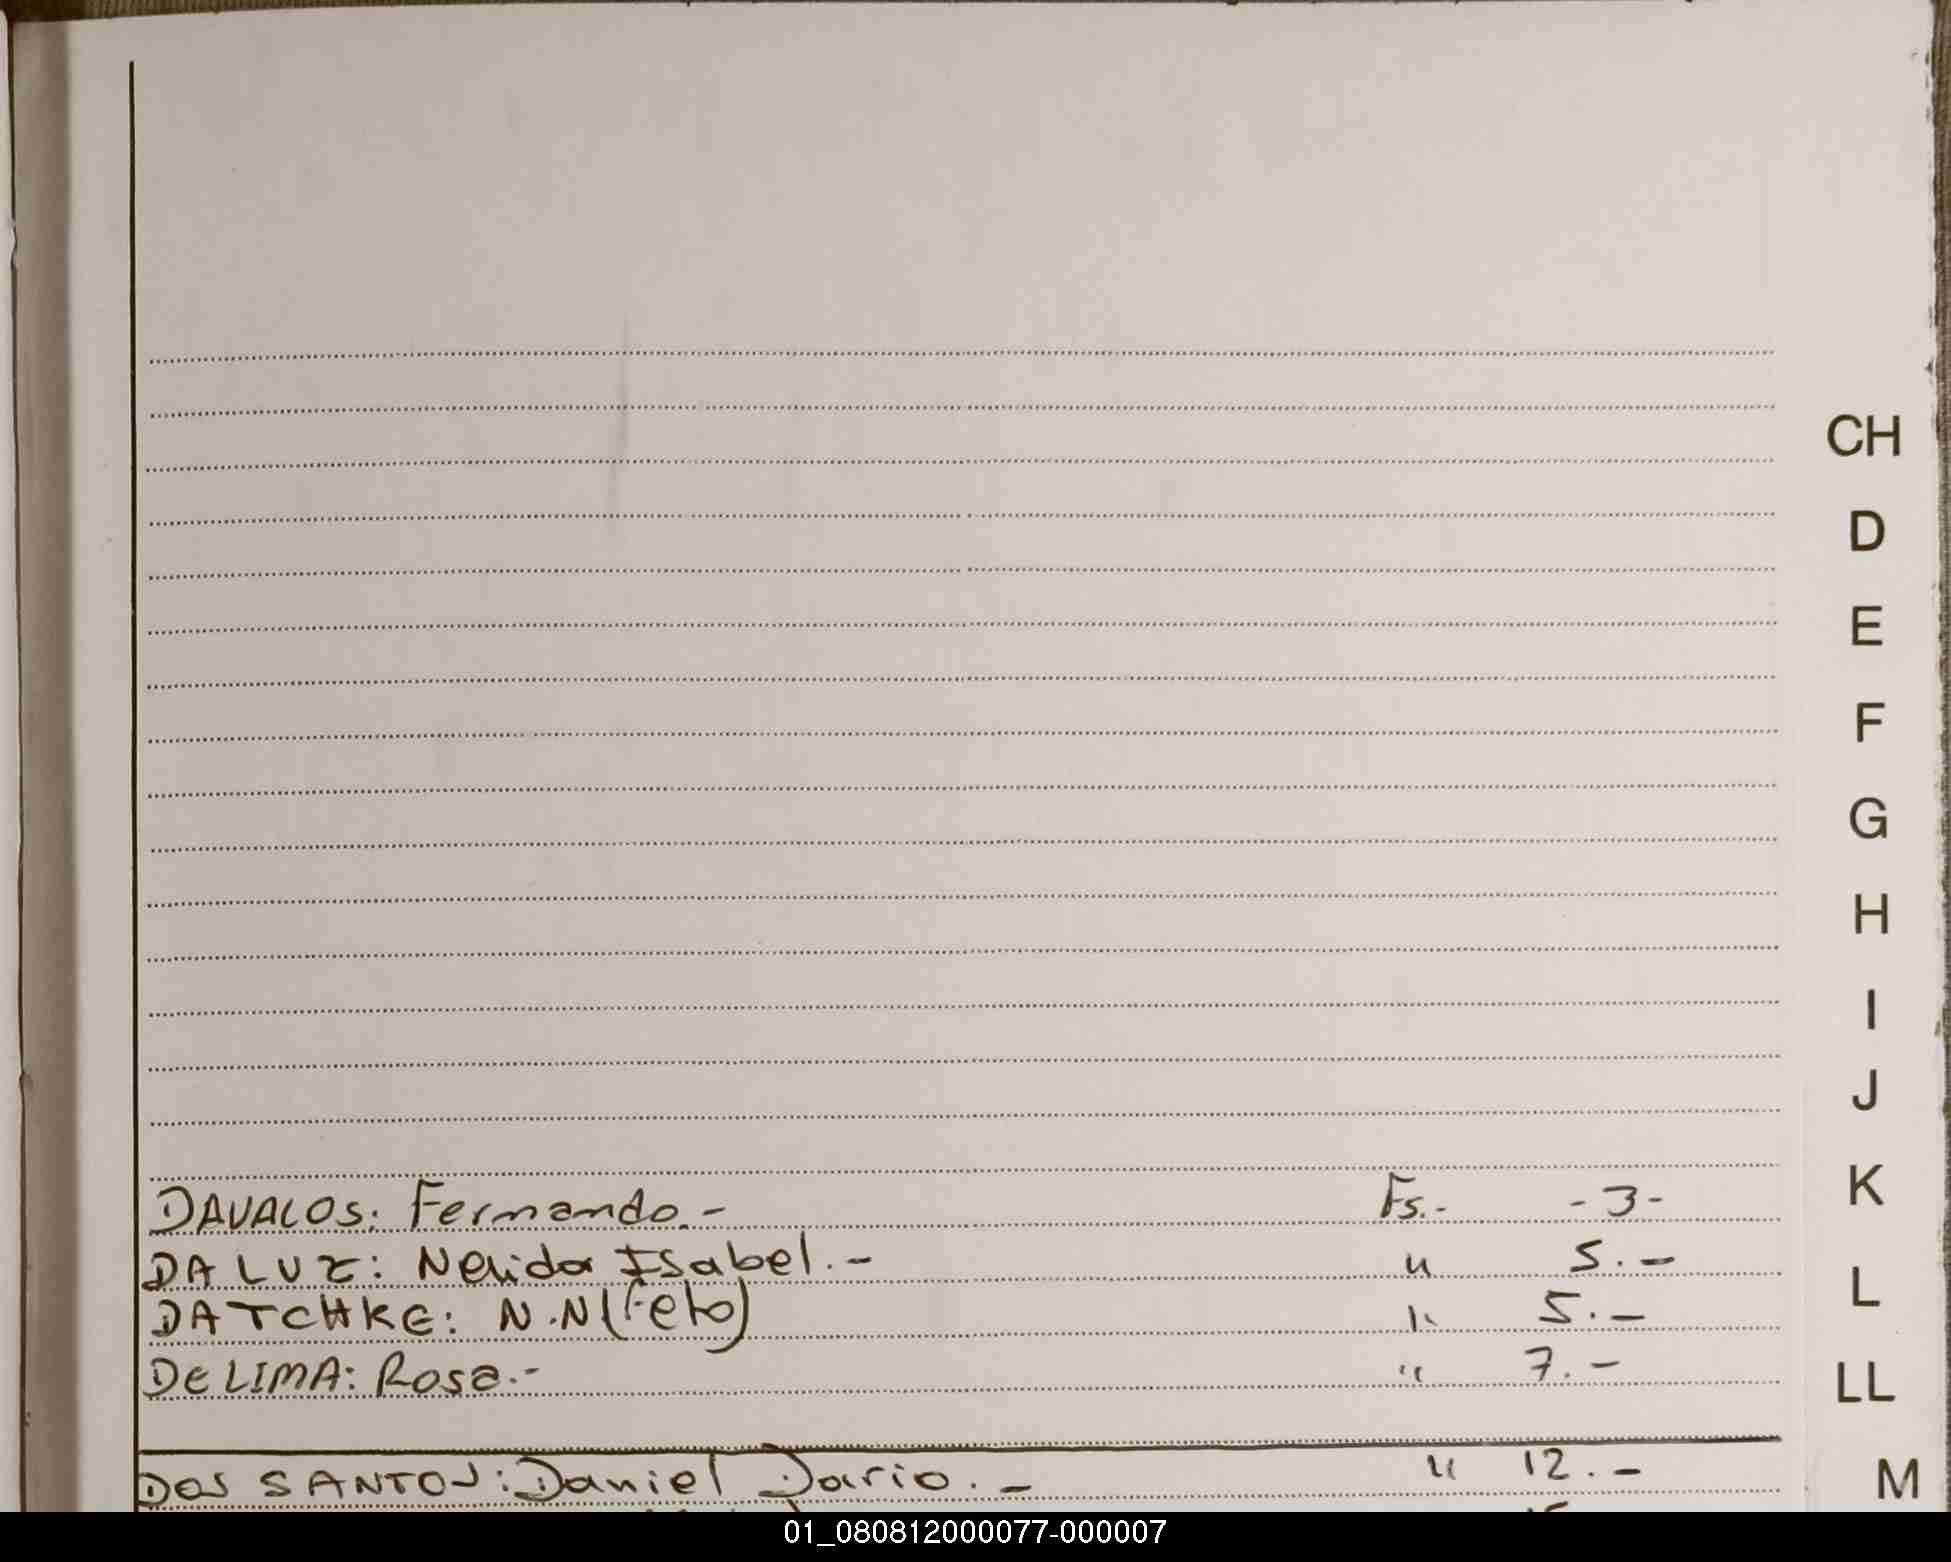 CH
D
E
F
G
H
I
J
K
DAVALOS: Fernando.- Fs.- -3-
DA LUZ: Nelida Isabel.- " 5.-
L
DATCHKE: N.N (Feto) " 5.-
DE LIMA: Rosa.- " 7.-
LL
DOS SANTOS: Daniel Dario.- " 12.-
M
01_080812000077-000007